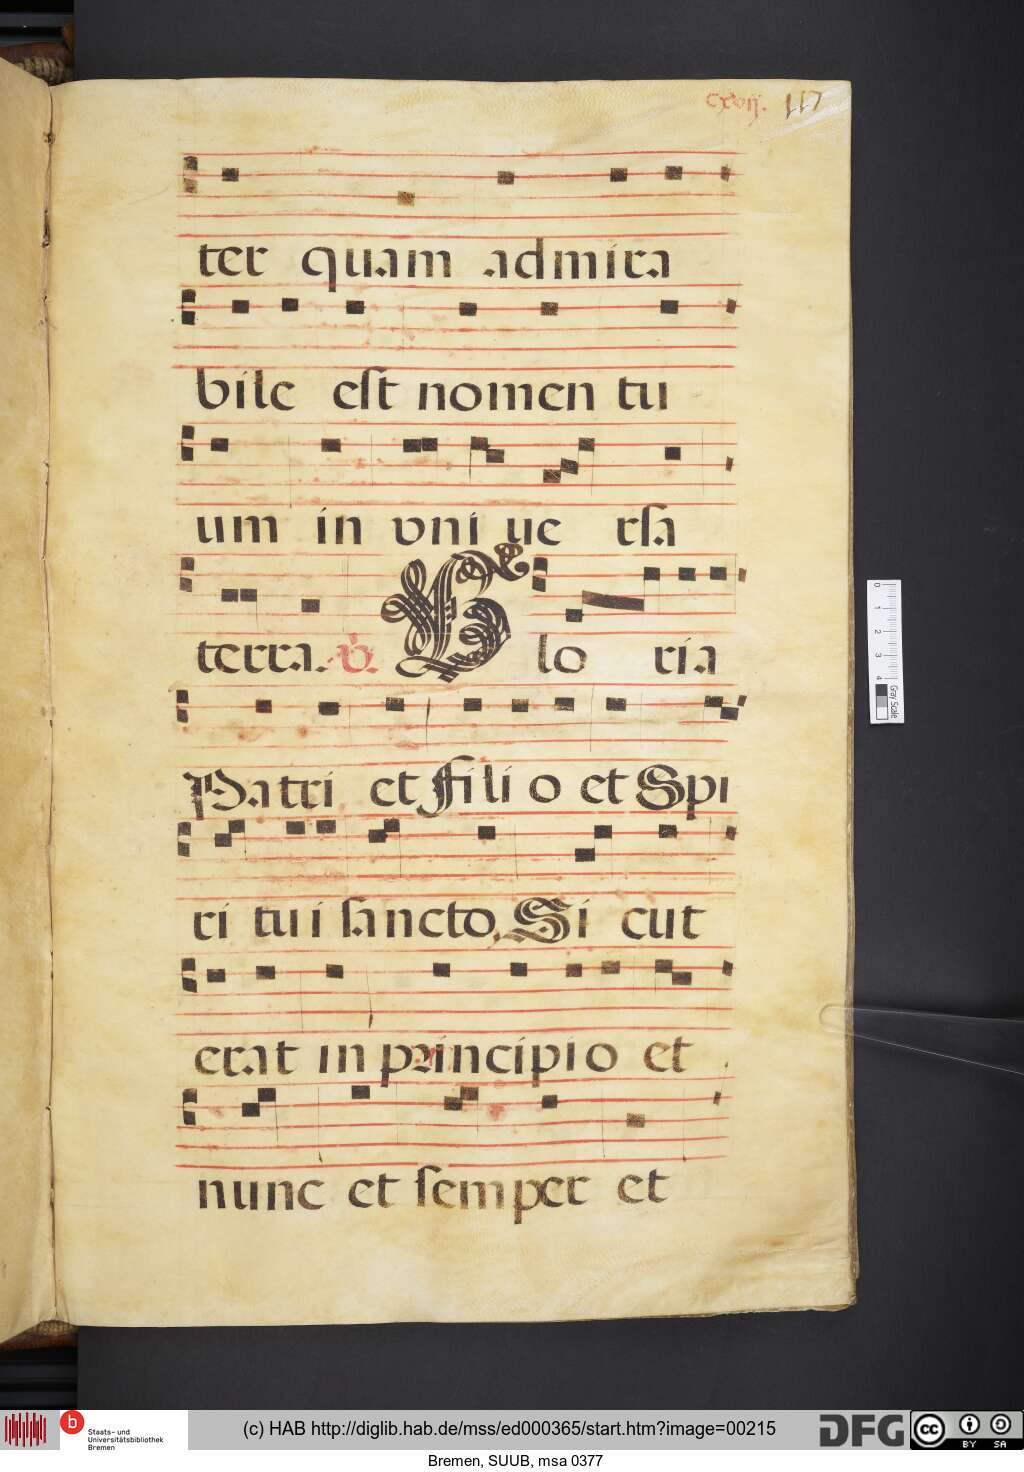 cxvij. 117
ter quam admira
bile eſt nomen tu
um in vni ue rſa
terra. v. Glo ria
Patri et Fili o et Spi
ri tui ſancto, Si cut
erat in principio et
nunc et ſemper et
0 1 2 3 4 Gray Scale
b Staats- und
Universitätsbibliothek
Bremen
(c) HAB http://diglib.hab.de/mss/ed000365/start.htm?image=00215
DFG
cc BY SA
Bremen, SUUB, msa 0377